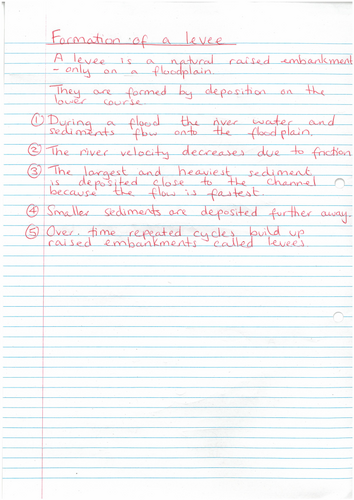 Formation of a levee
A levee is a natural raised embankment
- only on a floodplain.
They are formed by deposition on the
lower course.
① During a flood the river water and
sediments flow onto the floodplain.
② The river velocity decreases due to friction
③ The largest and heaviest sediment
is deposited close to the channel
because the flow is fastest.
④ Smaller sediments are deposited further away.
⑤ Over time repeated cycles build up
raised embankments called levees